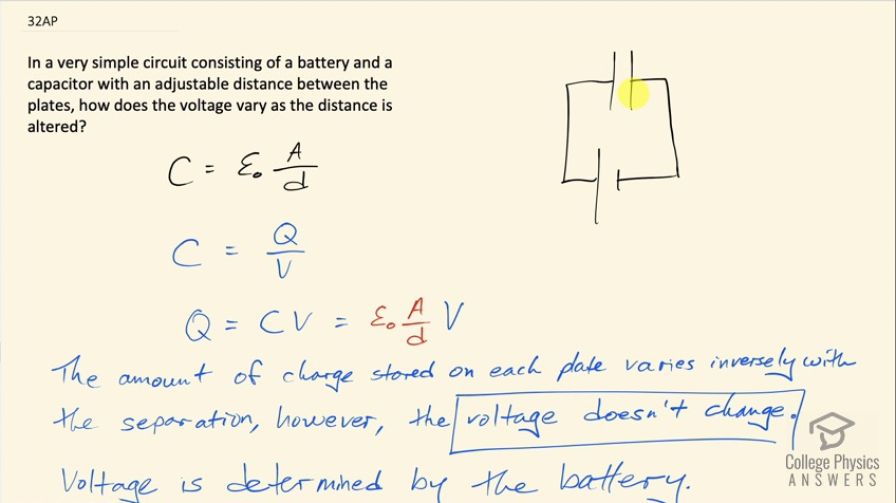 32AP
In a very simple circuit consisting of a battery and a
capacitor with an adjustable distance between the
plates, how does the voltage vary as the distance is
altered?
C = ε₀ A/d
C = Q/V
Q = CV = ε₀ A/d V
The amount of charge stored on each plate varies inversely with
the separation, however, the voltage doesn't change.
Voltage is determined by the battery.
College Physics
ANSWERS